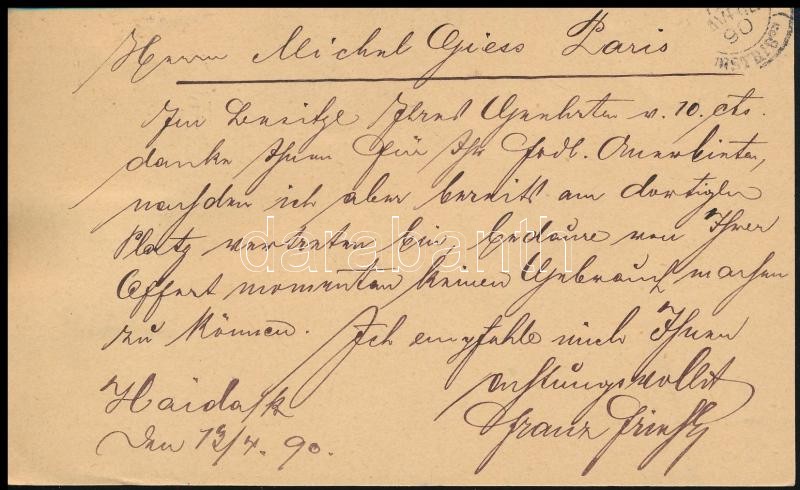 Herrn Michel Giess Paris
Im Besitze Ihres Geehrten v. 10. cts.
danke Ihnen für Ihr frdl. Anerbieten,
nachdem ich aber bereits am dortigen
Platz vertreten bin, bedaure von Ihrer
Offert momentan keinen Gebrauch machen
zu können. Ich empfehle mich Ihnen
achtungsvollst
Franz
Haida
den 13/4. 90.
90
DISTRIB
darabanth